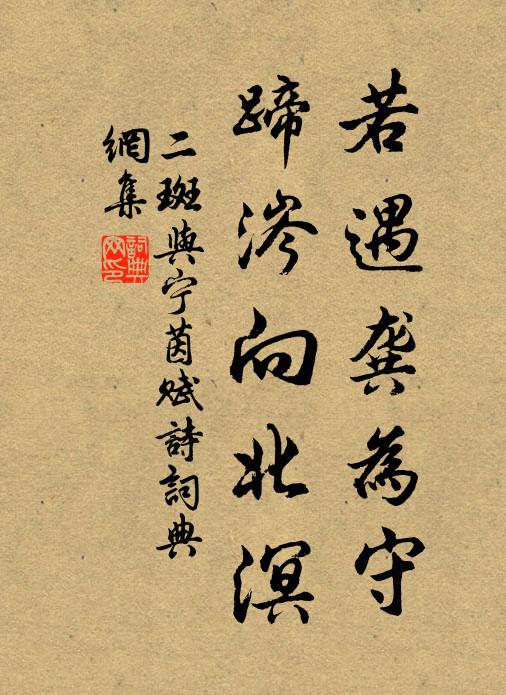 若遇龔為守
蹄涔向北溟
二斑與宁茵賦詩詞典
網集
詞典
网印